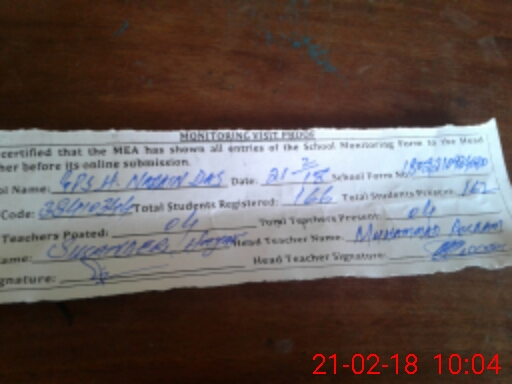 MONITORING VISIT PROOF
certified that the MEA has shown all entries of the School Monitoring Form to the Head
her before its online submission.
ol Name: GPS H. NARAIN DAS Date: 21-2-18 School Form No:
Code: Total Students Registered: 166 Total Students Present: 162
Teachers Posted: 04 Total Teachers Present: 04
ame: SIKANDER Head Teacher Name: MUHAMMAD AKRAM
gnature: Head Teacher Signature:
21-02-18 10:04